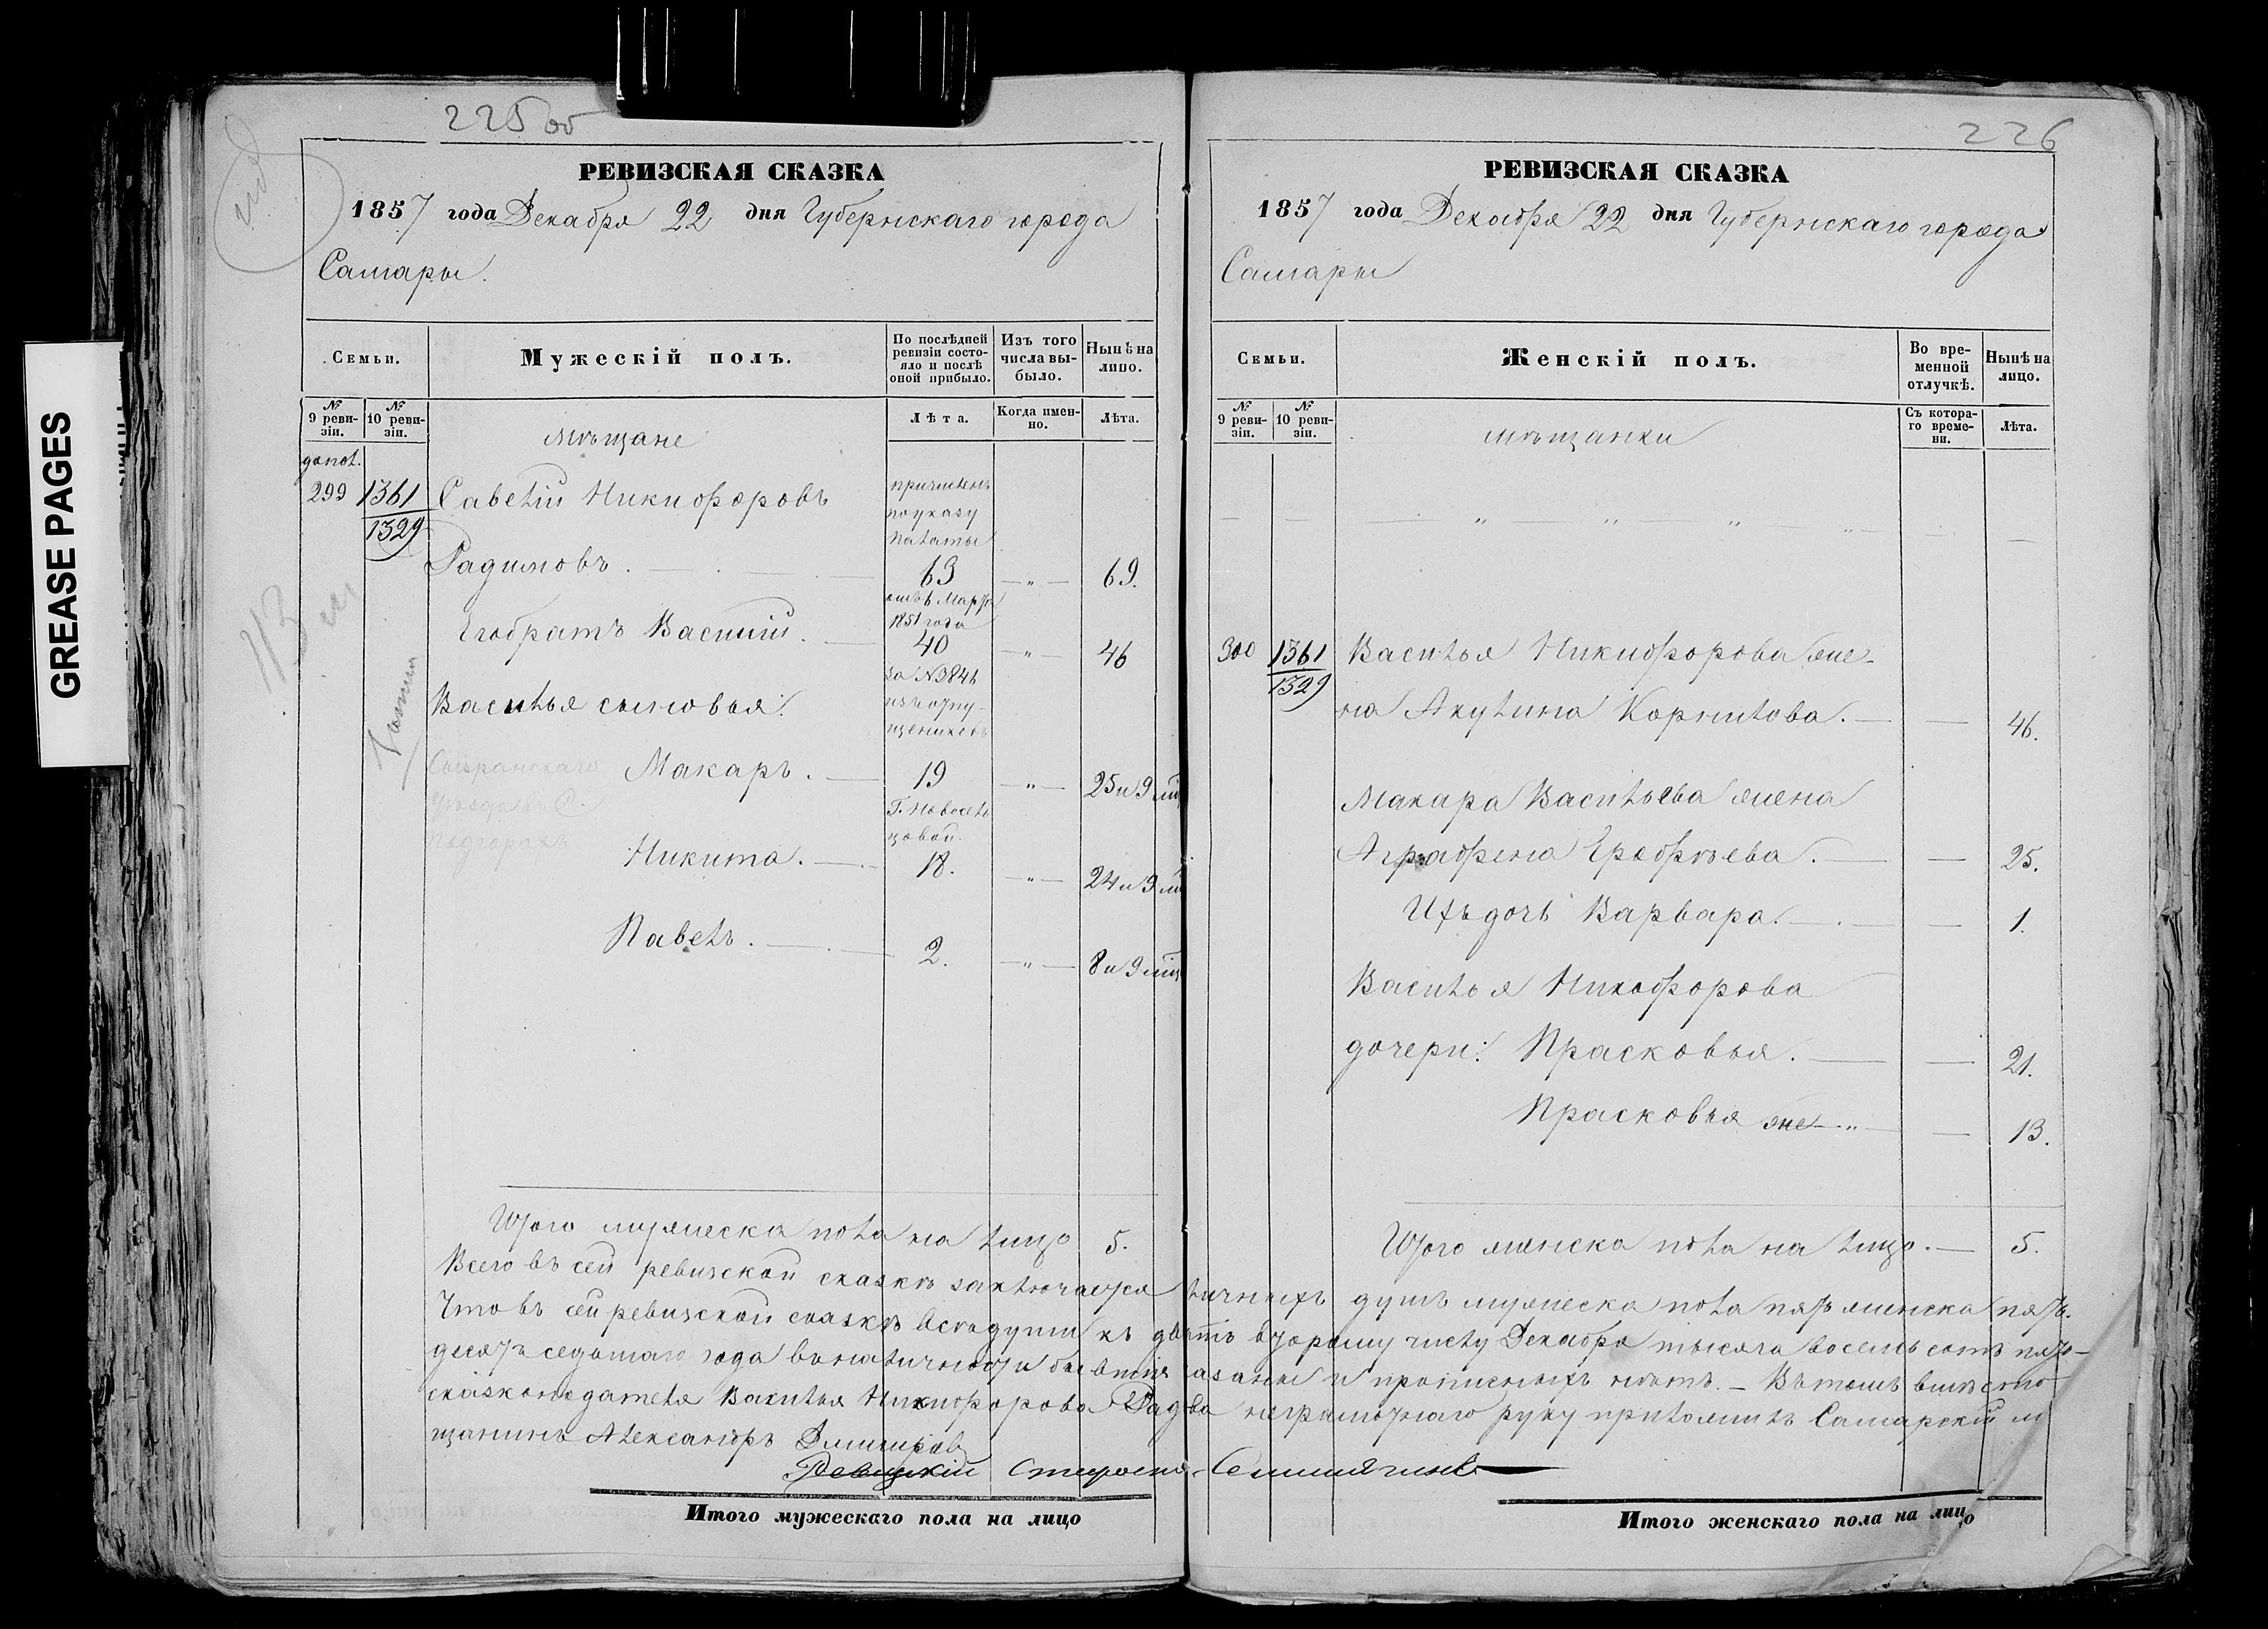 GREASE PAGES
225 об
РЕВИЗСКАЯ СКАЗКА
1857 года Декабря 22 дня Губернскаго города
Самары.
Семьи.
Мужескій полъ.
По послѣдней ревизіи состояло и послѣ оной прибыло.
Изъ того числа выбыло.
Нынѣ на лицо.
№ 9 ревизіи.
№ 10 ревизіи.
мѣщане
Лѣта.
Когда именно.
Лѣта.
допол.
299 1361 Савелій Никифоровъ
1329
причисленъ
по указу
Палаты
Радимовъ. 63 — „ — 69.
отъ 6 Марта
1851 года
Его братъ Василій. 40 — „ — 46
за № 3846
изъ отпу-
щениковъ
Василья сыновья:
Сызранскаго
уѣзда въ С.
Подгорахъ
Макаръ. 19 — „ — 25 и 9 мц
Г. Новосель
цовой.
Никита. 18. — „ — 24 и 9 мц
Павелъ. 2. — „ — 8 и 9 мц
Итого мужеска пола на лицо 5.
226
РЕВИЗСКАЯ СКАЗКА
1857 года Декабря 22 дня Губернскаго города
Самары
Семьи.
Женскій полъ.
Во временной отлучкѣ.
Нынѣ на лицо.
№ 9 ревизіи.
№ 10 ревизіи.
мѣщанки
Съ котораго времени.
Лѣта.
300 1361 Василья Никифорова же-
1329
на Акулина Корнилова. — 46.
Макара Васильева жена
Аграфена Ерофѣева. — 25.
Ихъ дочь Варвара. — 1.
Василья Никифорова
дочери: Прасковья. — 21.
Прасковья же — „ — 13.
Итого женска пола на лицо. — 5.
Всего въ сей ревизской сказкѣ заключается личныхъ душъ мужеска пола пять женска пять.
Что въ сей ревизской сказкѣ всѣ души къ двадцать второму числу Декабря тысяча восемь сотъ пять-
десятъ седьмаго года въ наличности бывшія показаны и прописныхъ нѣтъ. — Въ томъ вмѣсто
сказкоподателя Василья Никифорова неграмотнаго руку приложилъ Самарскій м
щанинъ Александръ Дмитріев
Ревизскій Староста
Итого мужескаго пола на лицо
Итого женскаго пола на лицо